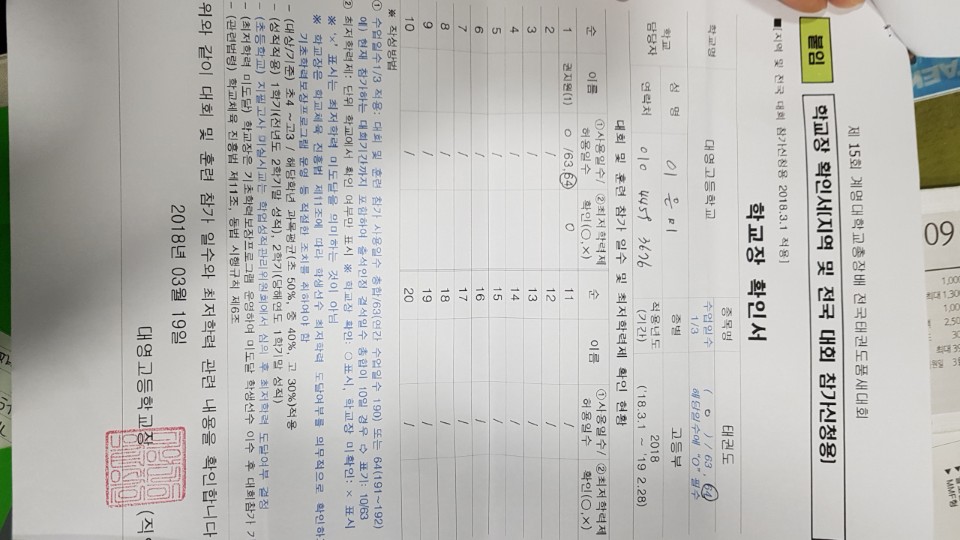 제 15회 계명대학교총장배 전국태권도품새대회
붙임
학교장 확인서(지역 및 전국 대회 참가신청용)
■[지역 및 전국 대회 참가신청용 2018.3.1 적용]
학교장 확인서
학교명 대영고등학교 종목명 태권도
수업일수 1/3 ( 0 ) / 63, 64
해당일수에 "O" 필수
학교 담당자 성 명 이은미 종별 고등부
연락처 010 4459 3676 적용년도 (기간) 2018 ('18.3.1 ~ '19.2.28)
대회 및 훈련 참가 일수 및 최저학력제 확인 현황
순 이름 ①사용일수/허용일수 ②최저학력제 확인(○,×) 순 이름 ①사용일수/허용일수 ②최저학력제 확인(○,×)
1 권지원(1) 0 /63,64 0 11 /
2 / 12 /
3 / 13 /
4 / 14 /
5 / 15 /
6 / 16 /
7 / 17 /
8 / 18 /
9 / 19 /
10 / 20 /
※ 작성방법
① 수업일수1/3 적용: 대회 및 훈련 참가 사용일수 총합/63(연간 수업일수 190) 또는 64(191~192)
예) 현재 참가하는 대회기간까지 포함하여 출석인정 결석일수 총합이 10일 경우 ⇨ 표기: 10/63
② 최저학력제: 단위 학교에서 확인 여부만 표시 ※ 학교장 확인: ○ 표시, 학교장 미확인: × 표시
※ '×' 표시는 최저학력 미도달을 의미하는 것이 아님
※ 학교장은 학교체육 진흥법 제11조에 따라 학생선수 최저학력 도달여부를 의무적으로 확인하고
기초학력보장프로그램 운영 등 적절한 조치를 취하여야 함
- (대상/기준) 초4 ~고3 / 해당학년 과목평균(초 50%, 중 40%, 고 30%)적용
- (성적적용) 1학기(전년도 2학기말 성적), 2학기(당해연도 1학기말 성적)
- (초등학교) 지필고사 미실시교는 학업성적관리위원회에서 심의 후 최저학력 도달여부 결정
- (최저학력 미도달) 학교장은 기초학력보장프로그램 운영하여 미도달 학생선수 이수 후 대회참가
- (관련법령) 학교체육 진흥법 제11조, 동법 시행규칙 제6조
위와 같이 대회 및 훈련 참가 일수와 최저학력 관련 내용을 확인합니다
2018년 03월 19일
대영고등학교장 (직
09
1,000
최대 1,30
1,00
2,50
30
최대 39
MMF형